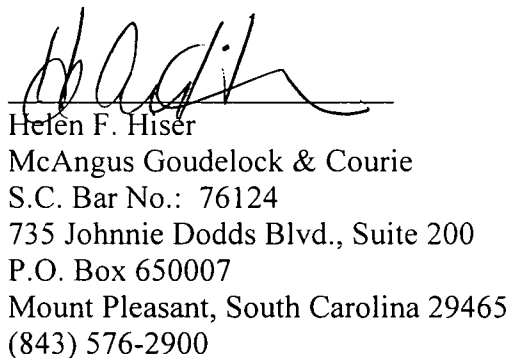 Helen F. Hiser
McAngus Goudelock & Courie
S.C. Bar No.: 76124
735 Johnnie Dodds Blvd., Suite 200
P.O. Box 650007
Mount Pleasant, South Carolina 29465
(843) 576-2900